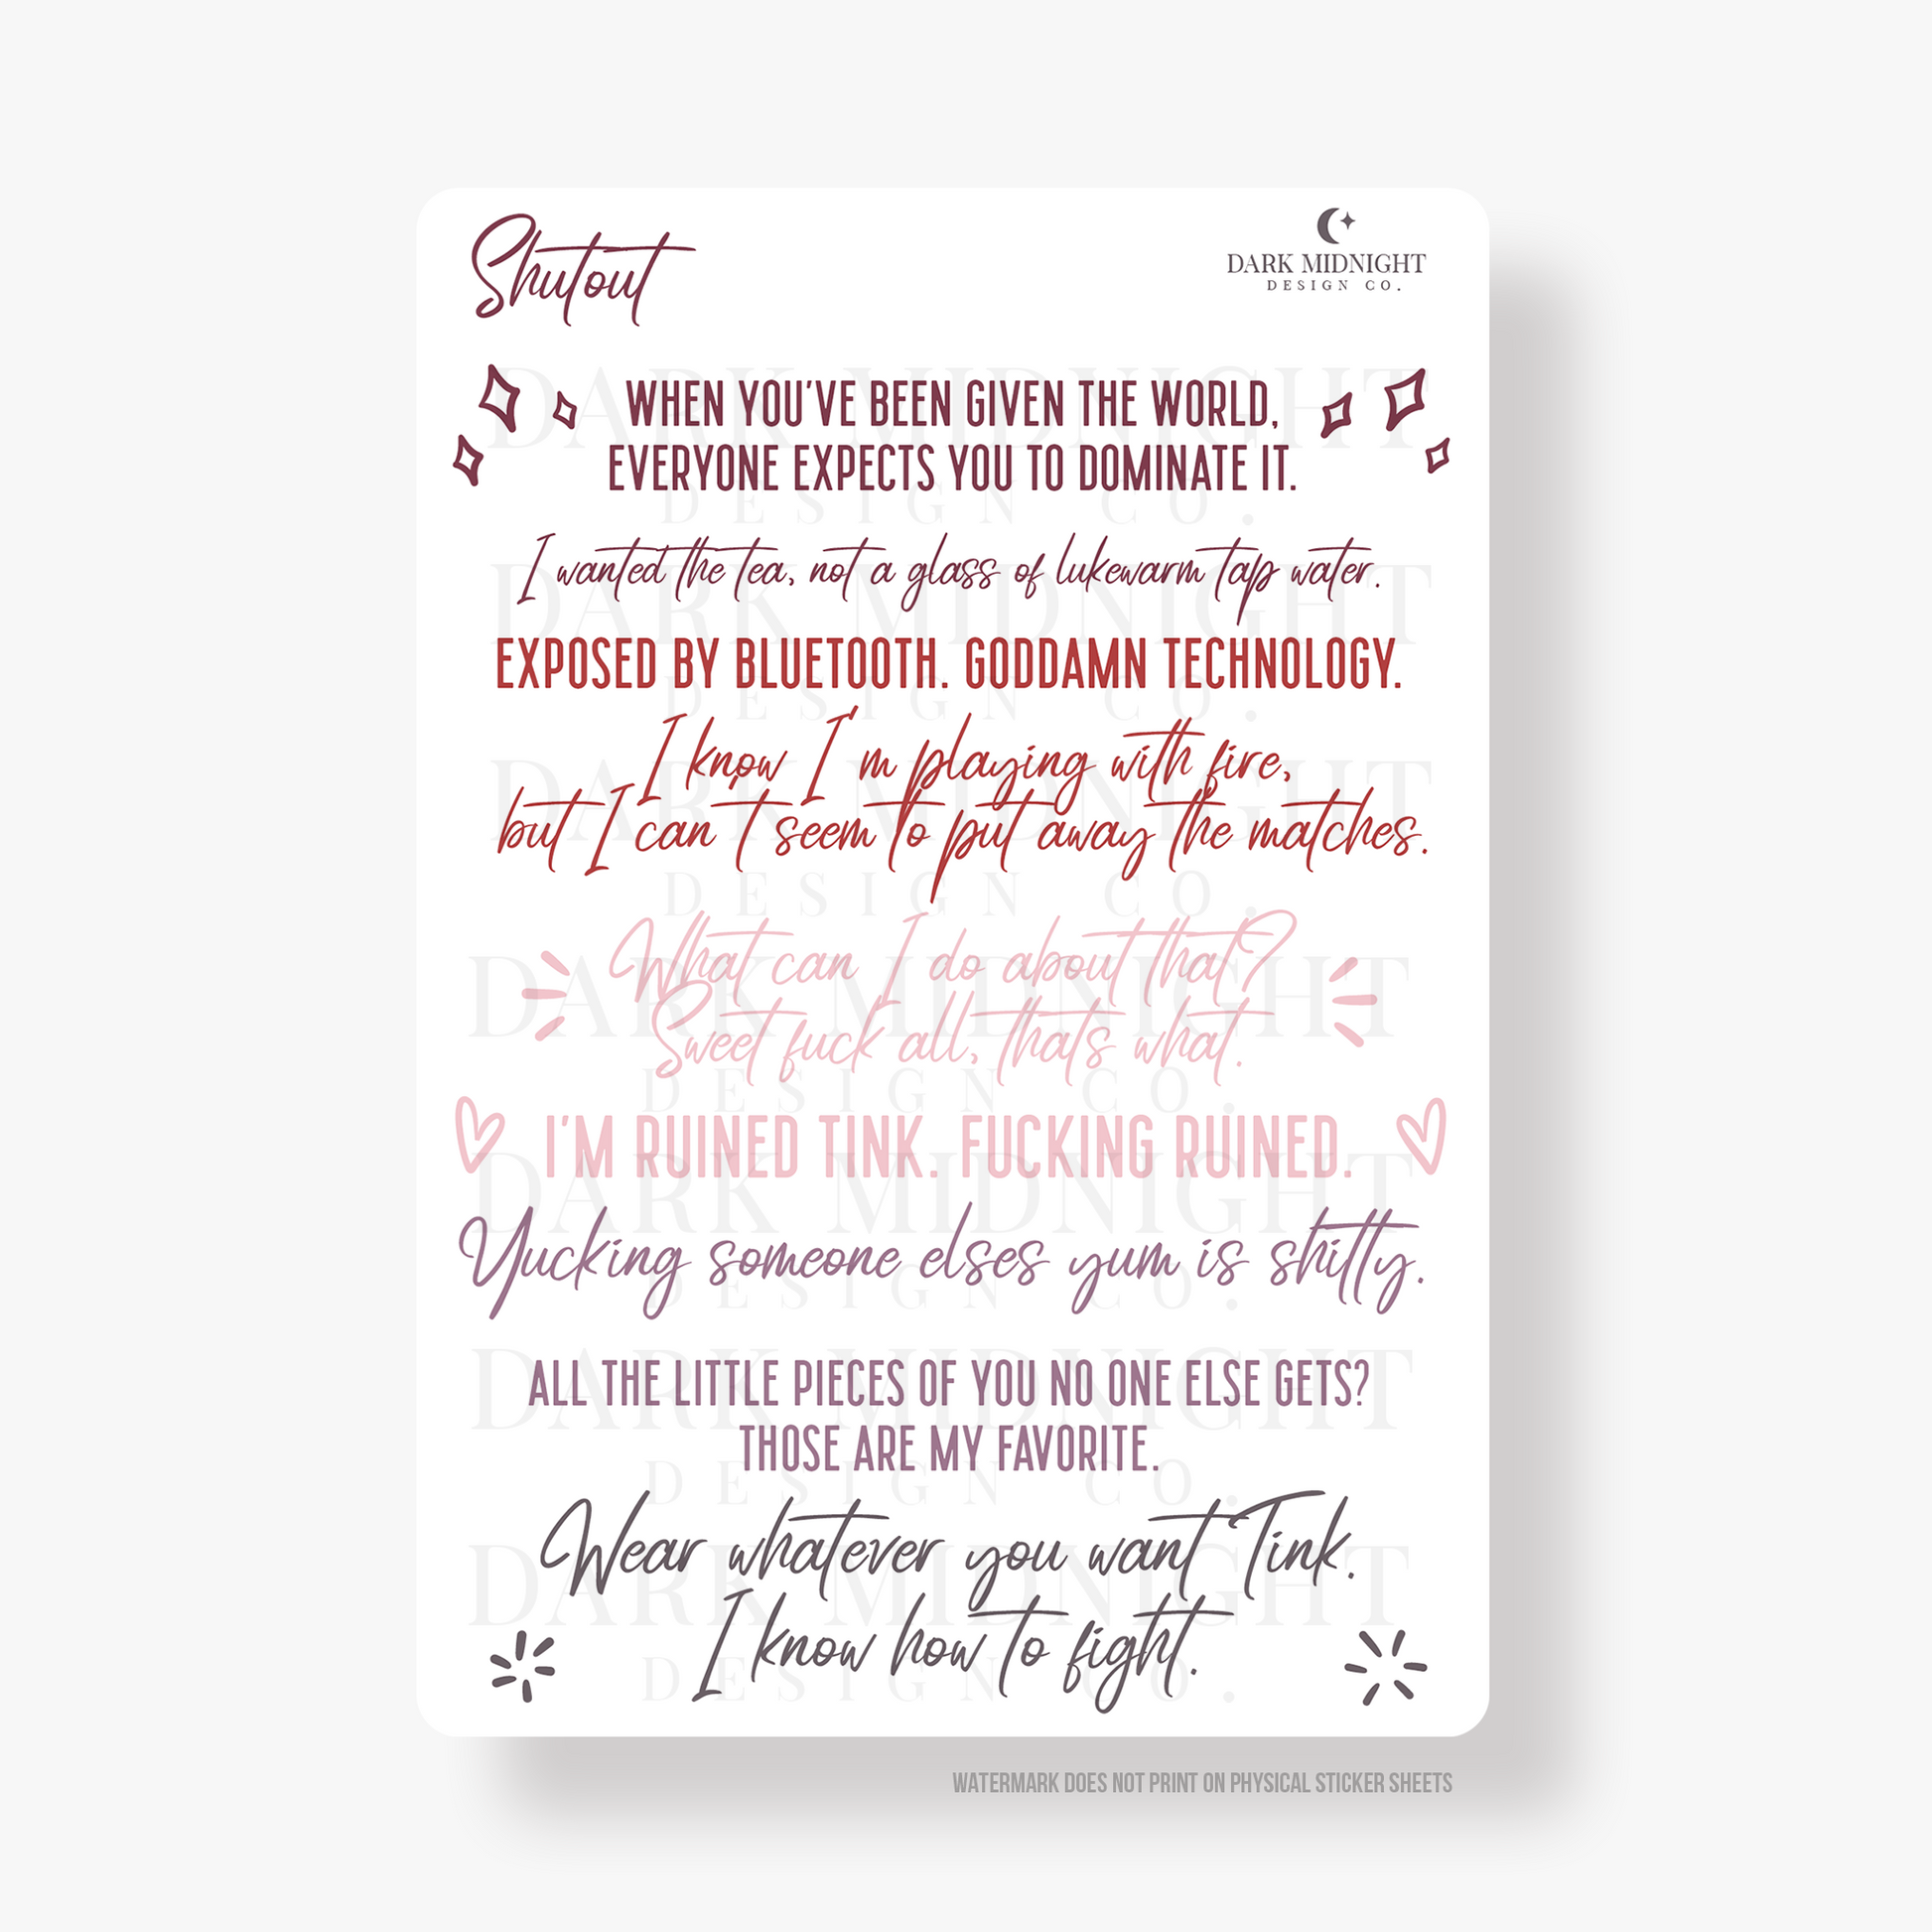 Shutout
DARK MIDNIGHT
DESIGN CO.
WHEN YOU'VE BEEN GIVEN THE WORLD,
EVERYONE EXPECTS YOU TO DOMINATE IT.
I wanted the tea, not a glass of lukewarm tap water.
EXPOSED BY BLUETOOTH. GODDAMN TECHNOLOGY.
I know I'm playing with fire,
but I can't seem to put away the matches.
What can I do about that?
Sweet fuck all, thats what.
I'M RUINED TINK. FUCKING RUINED.
Yucking someone elses yum is shitty.
ALL THE LITTLE PIECES OF YOU NO ONE ELSE GETS?
THOSE ARE MY FAVORITE.
Wear whatever you want Tink.
I know how to fight.
DARK MIDNIGHT
DESIGN CO.
DARK MIDNIGHT
DESIGN CO.
DARK MIDNIGHT
DESIGN CO.
DARK MIDNIGHT
DESIGN CO.
DARK MIDNIGHT
DESIGN CO.
DARK MIDNIGHT
DESIGN CO.
DARK MIDNIGHT
DESIGN CO.
WATERMARK DOES NOT PRINT ON PHYSICAL STICKER SHEETS